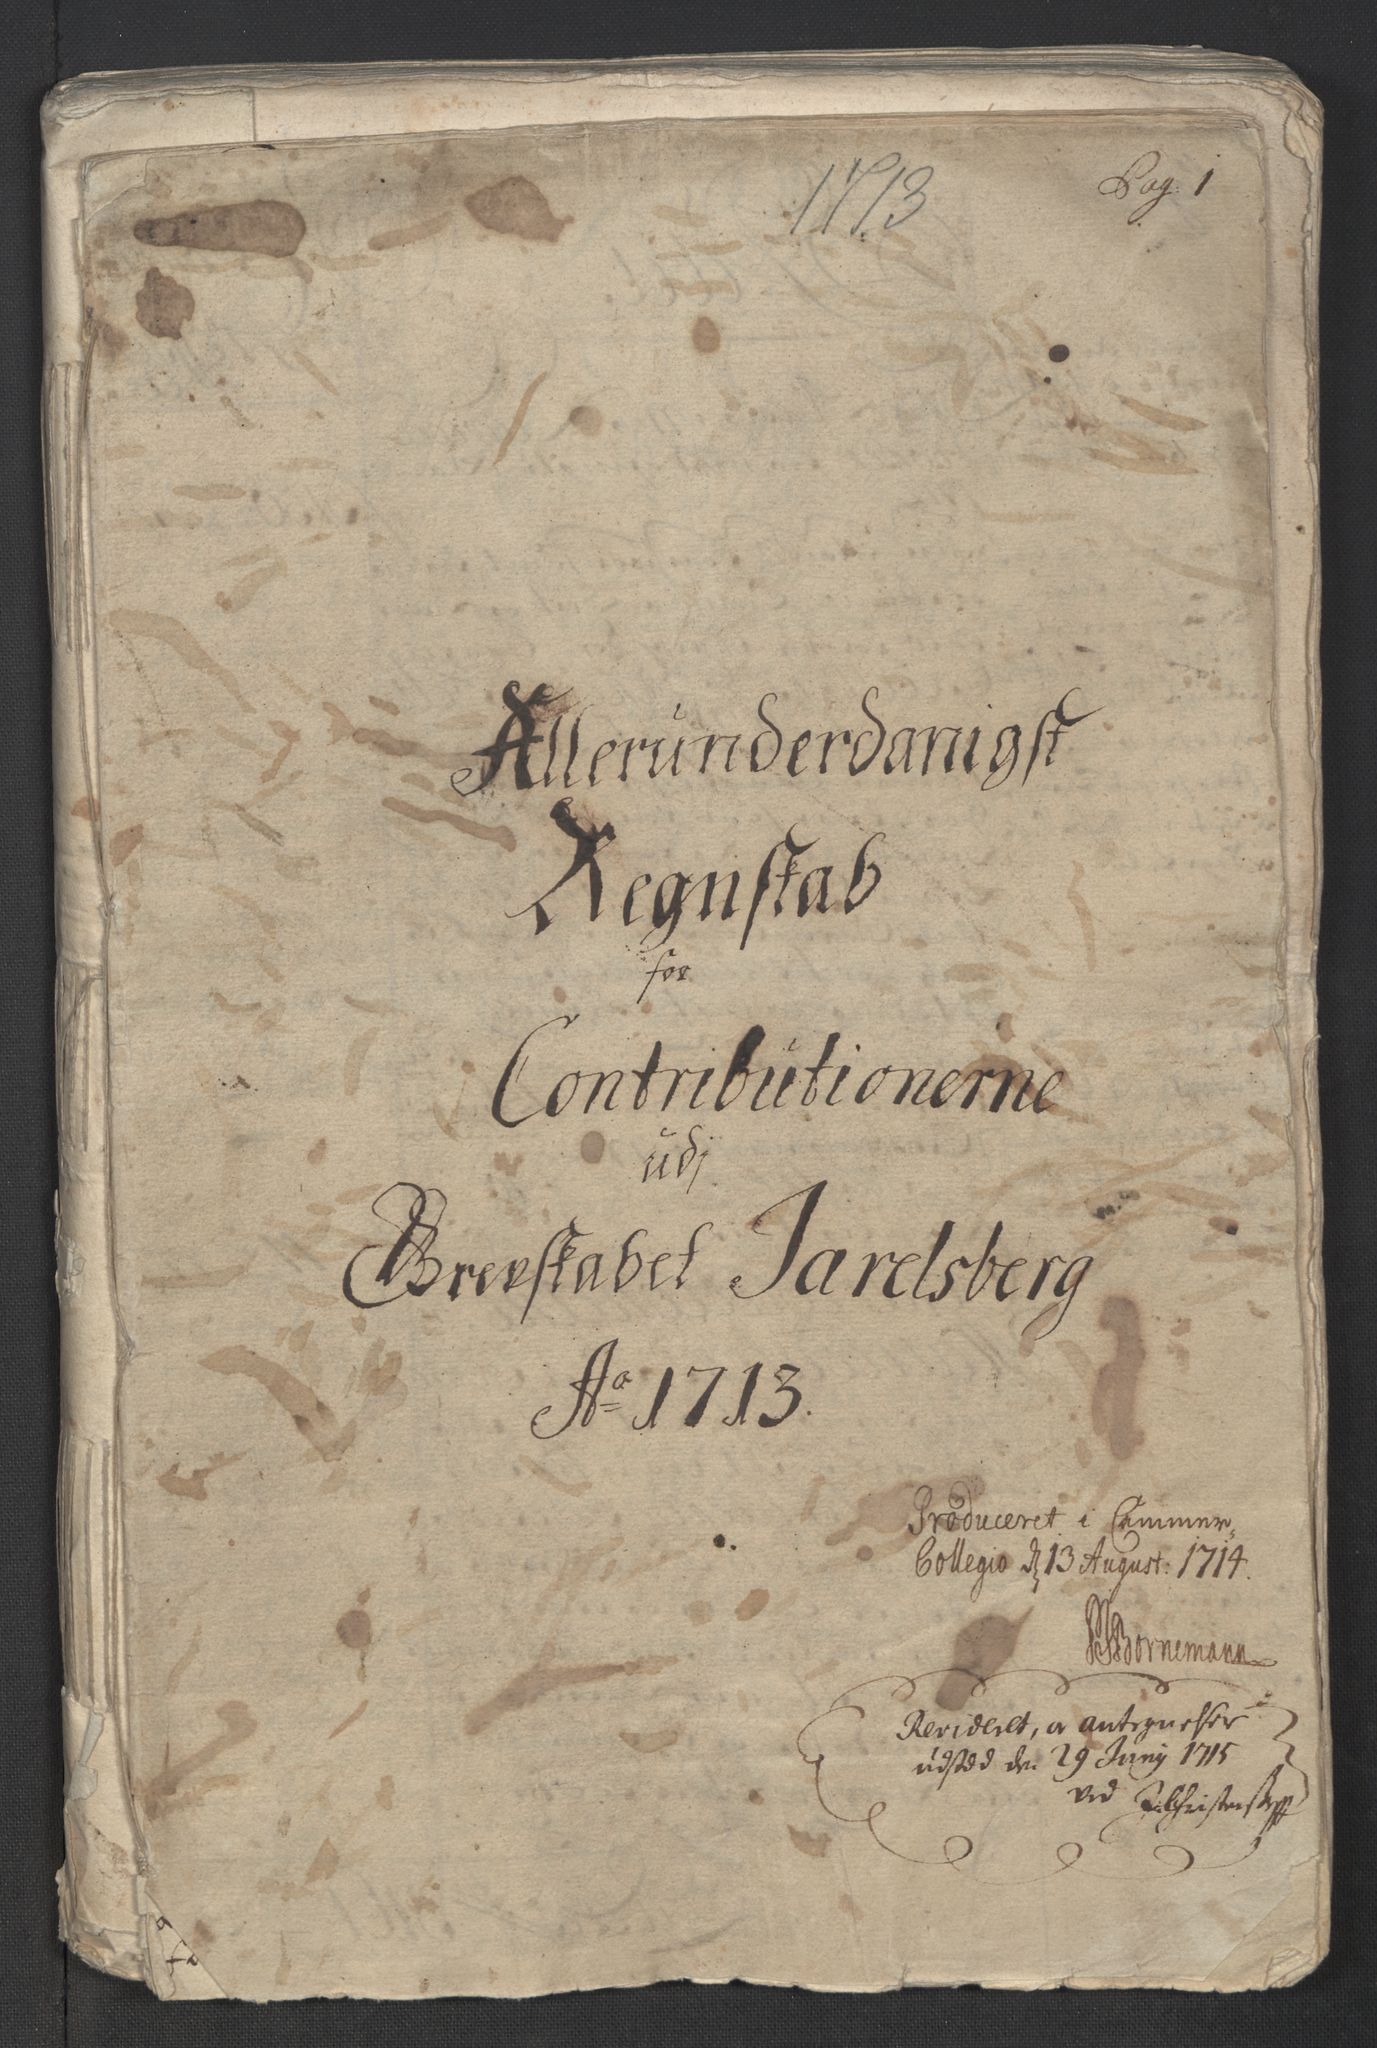 1713
Pag: 1
Alleründerdanigst
Regnskab
for
Contribütionerne
üdj
Grevskabet Jarelsberg
Aº 1713.
Produceret i Cammer,
Collegio d 13 August: 1714.
Bornemann
Revideret, og antegnelser
üdsted den 29 Junij 1715
ved